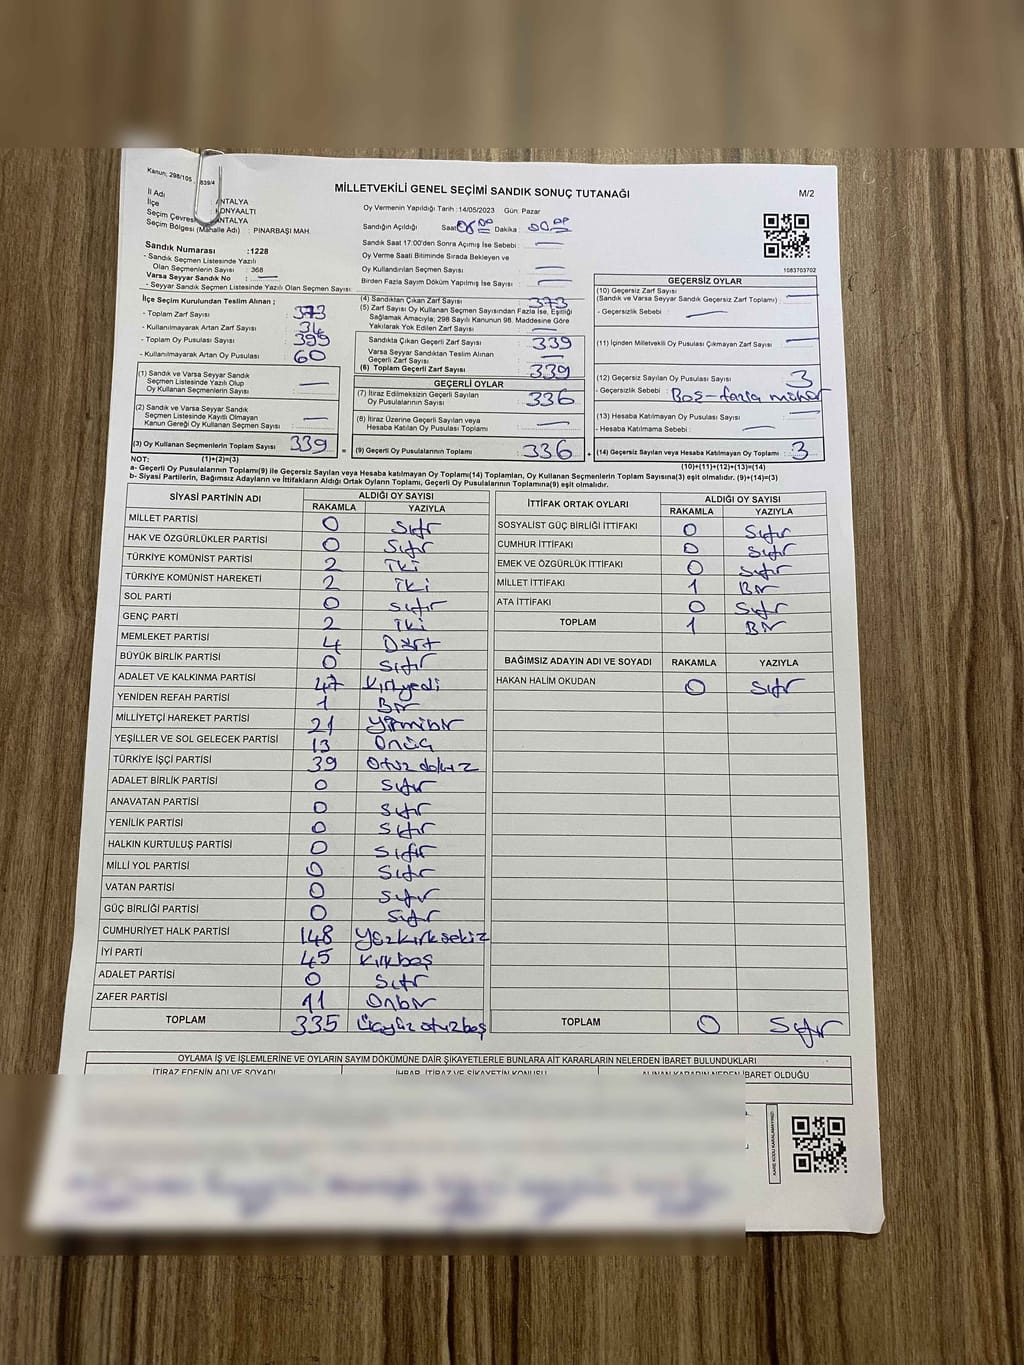 Kanun: 298/105, 839/4
MİLLETVEKİLİ GENEL SEÇİMİ SANDIK SONUÇ TUTANAĞI
M/2
İl Adı : ANTALYA
İlçe : KONYAALTI
Seçim Çevresi : ANTALYA
Seçim Bölgesi (Mahalle Adı) : PINARBAŞI MAH.
Oy Vermenin Yapıldığı Tarih : 14/05/2023 Gün: Pazar
Sandığın Açıldığı Saat Dakika :
Sandık Saat 17:00'den Sonra Açılmış İse Sebebi : —
Oy Verme Saati Bitiminde Sırada Bekleyen ve
Oy Kullandırılan Seçmen Sayısı : —
Birden Fazla Sayım Döküm Yapılmış İse Sayısı : —
1083703702
Sandık Numarası :1228
- Sandık Seçmen Listesinde Yazılı
Olan Seçmenlerin Sayısı : 368
Varsa Seyyar Sandık No : —
- Seyyar Sandık Seçmen Listesinde Yazılı Olan Seçmen Sayısı:
İlçe Seçim Kurulundan Teslim Alınan ;
- Toplam Zarf Sayısı : 373
- Kullanılmayarak Artan Zarf Sayısı : 34
- Toplam Oy Pusulası Sayısı : 399
- Kullanılmayarak Artan Oy Pusulası : 60
(1) Sandık ve Varsa Seyyar Sandık
Seçmen Listesinde Yazılı Olup
Oy Kullanan Seçmenlerin Sayısı —
(2) Sandık ve Varsa Seyyar Sandık
Seçmen Listesinde Kayıtlı Olmayan
Kanun Gereği Oy Kullanan Seçmen Sayısı : —
(3) Oy Kullanan Seçmenlerin Toplam Sayısı 339
(4) Sandıktan Çıkan Zarf Sayısı : 373
(5) Zarf Sayısı Oy Kullanan Seçmen Sayısından Fazla İse, Eşitliği
Sağlamak Amacıyla; 298 Sayılı Kanunun 98. Maddesine Göre
Yakılarak Yok Edilen Zarf Sayısı : —
Sandıkta Çıkan Geçerli Zarf Sayısı : 339
Varsa Seyyar Sandıktan Teslim Alınan
Geçerli Zarf Sayısı : —
(6) Toplam Geçerli Zarf Sayısı : 339
GEÇERLİ OYLAR
(7) İtiraz Edilmeksizin Geçerli Sayılan
Oy Pusulalarının Sayısı : 336
(8) İtiraz Üzerine Geçerli Sayılan veya
Hesaba Katılan Oy Pusulası Toplamı : —
(9) Geçerli Oy Pusulalarının Toplamı : 336
GEÇERSİZ OYLAR
(10) Geçersiz Zarf Sayısı
(Sandık ve Varsa Seyyar Sandık Geçersiz Zarf Toplamı) : —
- Geçersizlik Sebebi : —
(11) İçinden Milletvekili Oy Pusulası Çıkmayan Zarf Sayısı : —
(12) Geçersiz Sayılan Oy Pusulası Sayısı : 3
- Geçersizlik Sebebi : Boş-fazla mühür
(13) Hesaba Katılmayan Oy Pusulası Sayısı : —
- Hesaba Katılmama Sebebi : —
(14) Geçersiz Sayılan veya Hesaba Katılmayan Oy Toplamı : 3
NOT: (1)+(2)=(3) (10)+(11)+(12)+(13)=(14)
a- Geçerli Oy Pusulalarının Toplamı(9) ile Geçersiz Sayılan veya Hesaba katılmayan Oy Toplamı(14) Toplamları, Oy Kullanan Seçmenlerin Toplam Sayısına(3) eşit olmalıdır. (9)+(14)=(3)
b- Siyasi Partilerin, Bağımsız Adayların ve İttifakların Aldığı Ortak Oyların Toplamı, Geçerli Oy Pusulalarının Toplamına(9) eşit olmalıdır.
SİYASİ PARTİNİN ADI ALDIĞI OY SAYISI
RAKAMLA YAZIYLA
MİLLET PARTİSİ 0 Sıfır
HAK VE ÖZGÜRLÜKLER PARTİSİ 0 Sıfır
TÜRKİYE KOMÜNİST PARTİSİ 2 iki
TÜRKİYE KOMÜNİST HAREKETİ 2 iki
SOL PARTİ 0 sıfır
GENÇ PARTİ 2 iki
MEMLEKET PARTİSİ 4 Dört
BÜYÜK BİRLİK PARTİSİ 0 sıfır
ADALET VE KALKINMA PARTİSİ 47 kırkyedi
YENİDEN REFAH PARTİSİ 1 Bir
MİLLİYETÇİ HAREKET PARTİSİ 21 yirmibir
YEŞİLLER VE SOL GELECEK PARTİSİ 13 Onüç
TÜRKİYE İŞÇİ PARTİSİ 39 Otuz dokuz
ADALET BİRLİK PARTİSİ 0 sıfır
ANAVATAN PARTİSİ 0 sıfır
YENİLİK PARTİSİ 0 sıfır
HALKIN KURTULUŞ PARTİSİ 0 sıfır
MİLLİ YOL PARTİSİ 0 sıfır
VATAN PARTİSİ 0 sıfır
GÜÇ BİRLİĞİ PARTİSİ 0 sıfır
CUMHURİYET HALK PARTİSİ 148 yüzkırksekiz
İYİ PARTİ 45 kırkbeş
ADALET PARTİSİ 0 sıfır
ZAFER PARTİSİ 11 Onbir
TOPLAM 335 üçyüzotuzbeş
İTTİFAK ORTAK OYLARI ALDIĞI OY SAYISI
RAKAMLA YAZIYLA
SOSYALİST GÜÇ BİRLİĞİ İTTİFAKI 0 Sıfır
CUMHUR İTTİFAKI 0 sıfır
EMEK VE ÖZGÜRLÜK İTTİFAKI 0 sıfır
MİLLET İTTİFAKI 1 Bir
ATA İTTİFAKI 0 Sıfır
TOPLAM 1 Bir
BAĞIMSIZ ADAYIN ADI VE SOYADI RAKAMLA YAZIYLA
HAKAN HALİM OKUDAN 0 Sıfır
TOPLAM 0 Sıfır
OYLAMA İŞ VE İŞLEMLERİNE VE OYLARIN SAYIM DÖKÜMÜNE DAİR ŞİKAYETLERLE BUNLARA AİT KARARLARIN NELERDEN İBARET BULUNDUKLARI
İTİRAZ EDENİN ADI VE SOYADI İHBAR, İTİRAZ VE ŞİKAYETİN KONUSU ALINAN KARARIN NEDEN İBARET OLDUĞU
KARE KODU KARALAMAYINIZ!